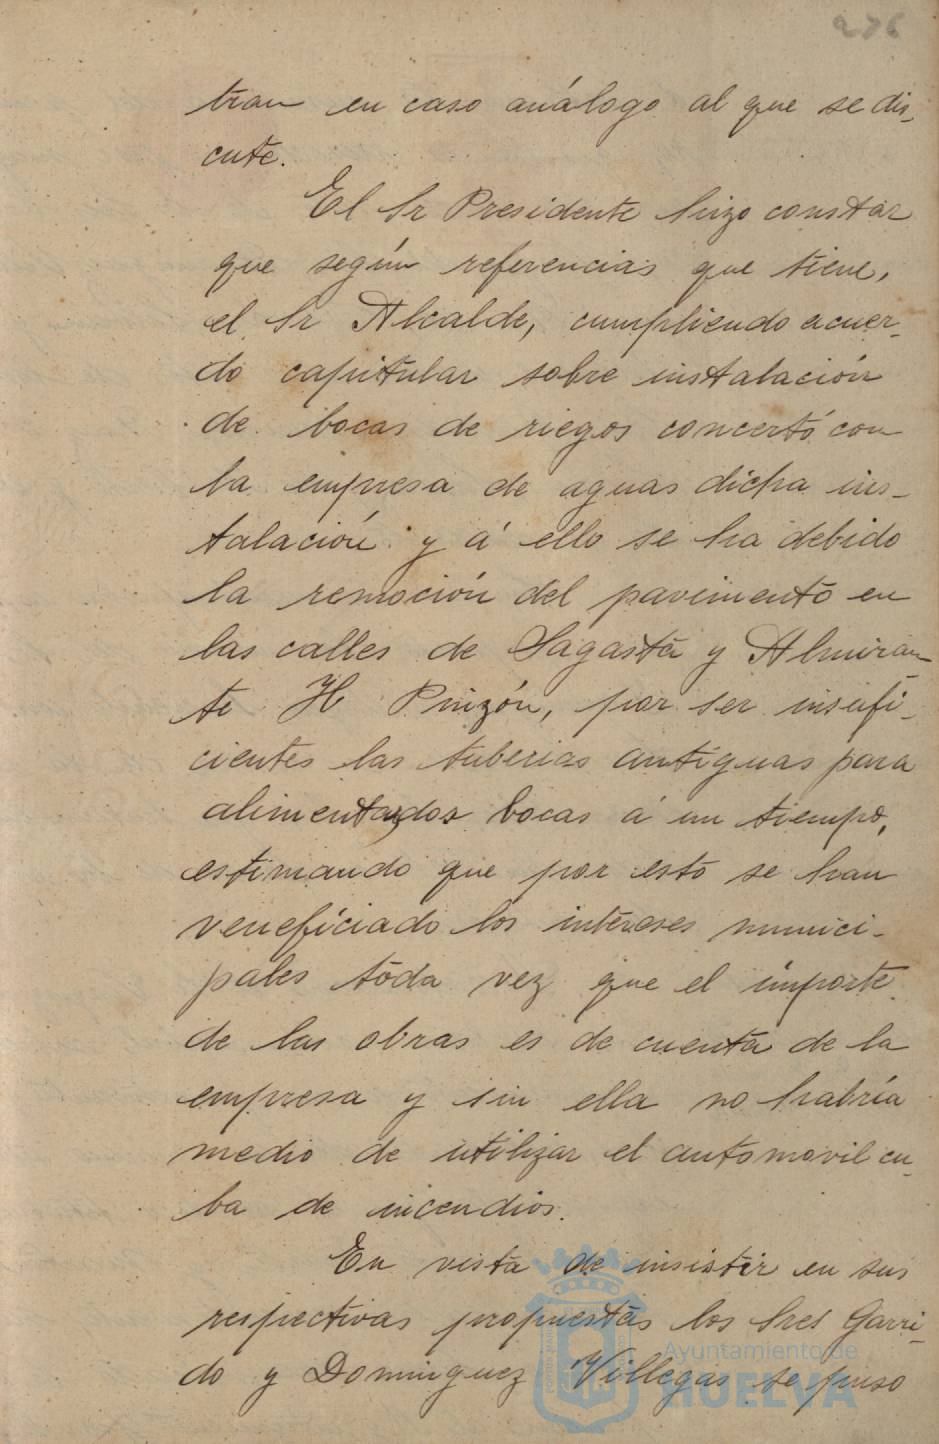 276
tran en caso análogo al que se dis-
cute.
El Sr Presidente hizo constar
que según referencias que tiene,
el Sr Alcalde, cumpliendo acuer-
do capitular sobre instalación
de bocas de riegos concertó con
la empresa de aguas dicha ins-
talación y á ello se ha debido
la remoción del pavimento en
las calles de Sagasta y Almiran-
te H Pinzón, por ser insufi-
cientes las tuberias antiguas para
alimentar dos bocas á un tiempo,
estimando que por esto se han
veneficiado los intereses munici-
pales toda vez que el importe
de las obras es de cuenta de la
empresa y sin ella no habría
medio de utilizar el automovil cu-
ba de incendios.
En vista de insistir en sus
respectivas propuestas los Sres Garri-
do y Dominguez Villegas se puso
Ayuntamiento de
HUELVA